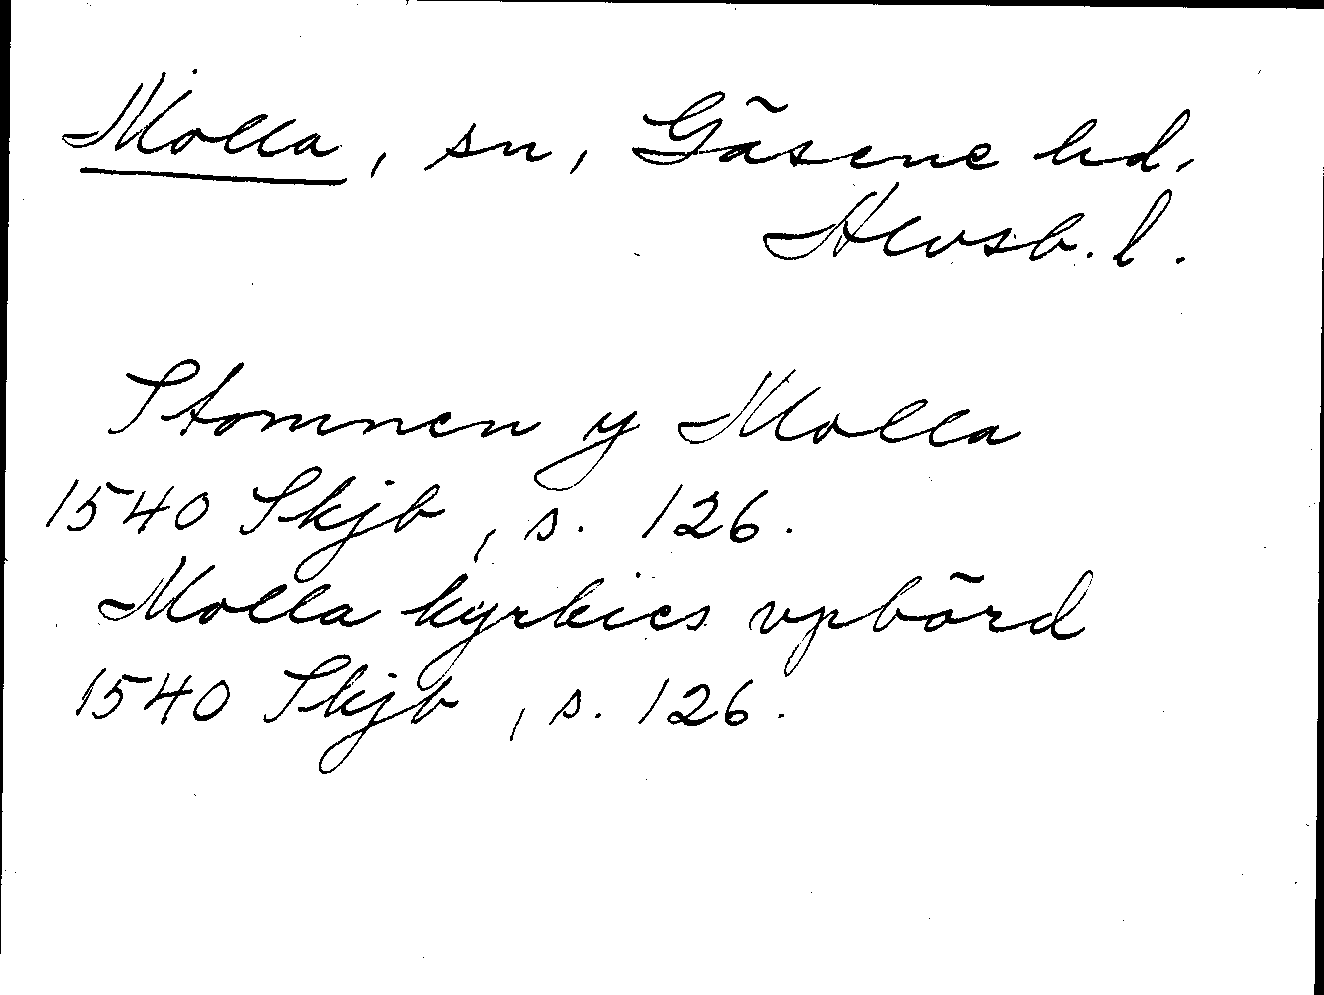 Molla, sn, Gäsene hd,
Älvsb. l.
Stomnen y Molla
1540 Skjb, s. 126.
Molla kyrkies vpbörd
1540 Skjb, s. 126.